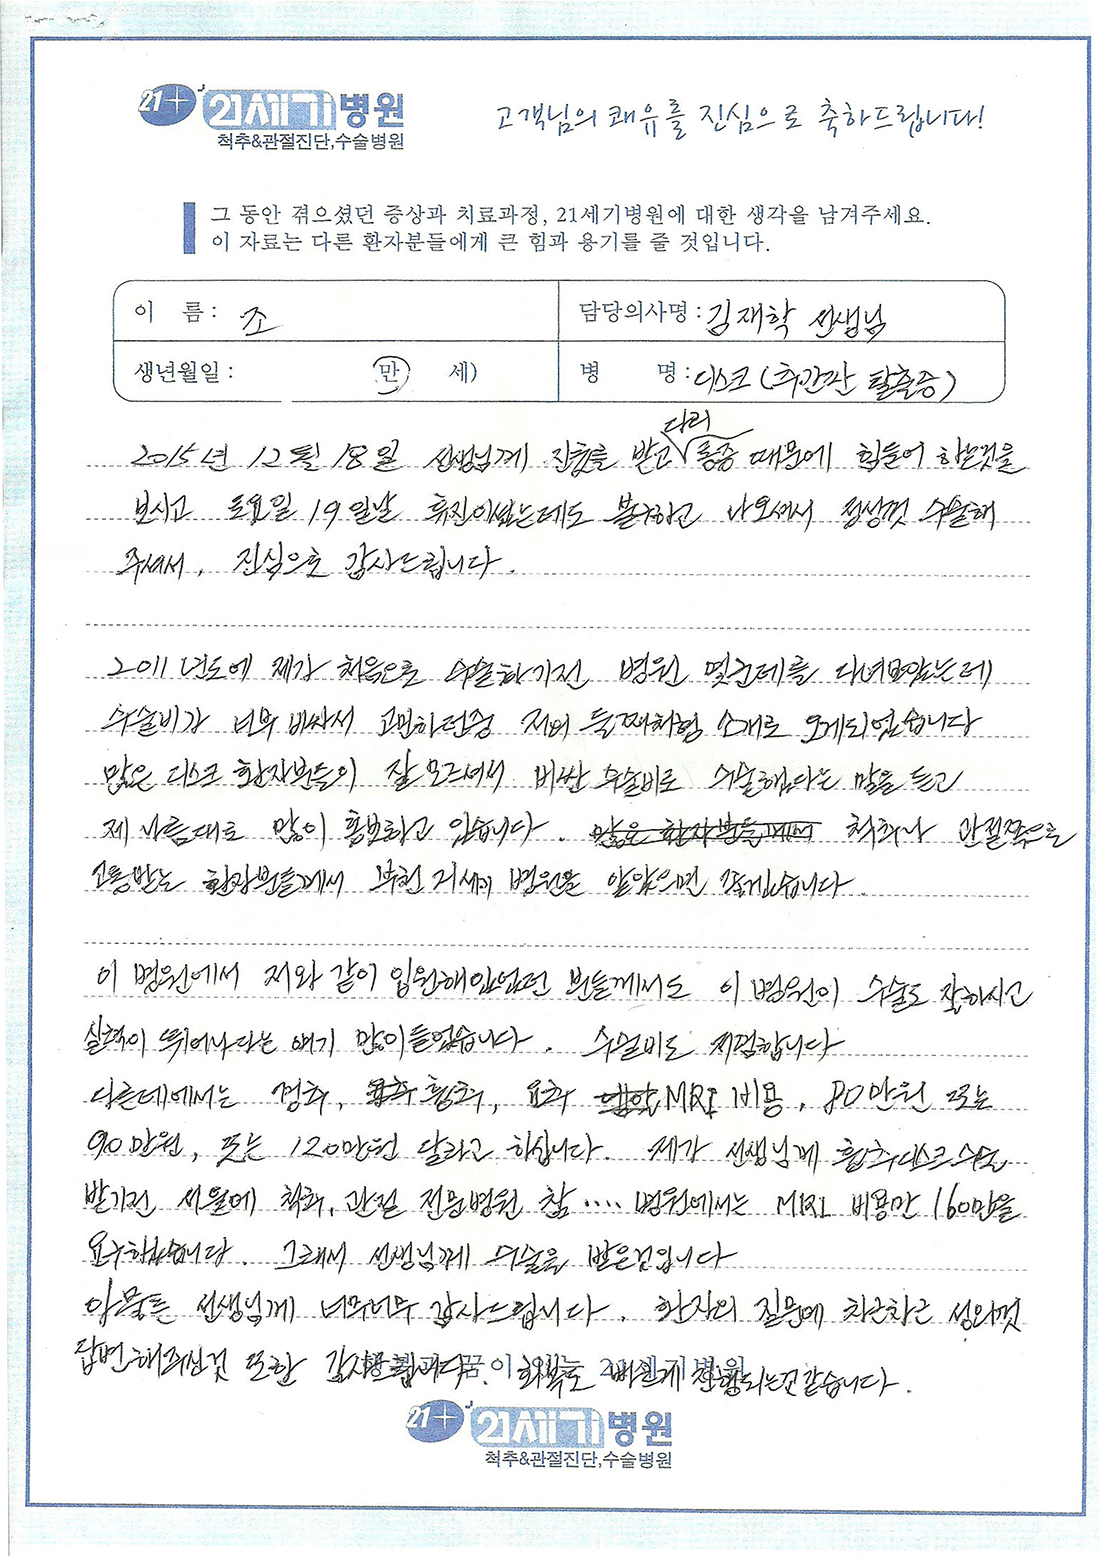 21+ 21세기병원
척추&관절진단,수술병원
고객님의 쾌유를 진심으로 축하드립니다!
그 동안 겪으셨던 증상과 치료과정, 21세기병원에 대한 생각을 남겨주세요.
이 자료는 다른 환자분들에게 큰 힘과 용기를 줄 것입니다.
이 름 : 조
담당의사명 : 김재학 선생님
생년월일 : 만 세)
병 명 : 디스크 (추간판 탈출증)
2015년 12월 18일 선생님께 진찰을 받고 다리 통증 때문에 힘들어 하는것을
보시고 토요일 19일날 휴진이셨는데도 불구하고 나오셔서 정성껏 수술해
주셔서, 진심으로 감사드립니다.
2011년도에 제가 처음으로 수술하기전 병원 몇군데를 다녀보았는데
수술비가 너무 비싸서 고민하던중 저의 둘째처형 소개로 오게되었습니다
많은 디스크 환자분들이 잘 모르셔서 비싼 수술비로 수술했다는 말을 듣고
제 나름대로 많이 홍보하고 있습니다. 많은 환자분들께서 척추나 관절쪽으로
고통받는 환자분들께서 부천 21세기 병원을 알았으면 좋겠습니다.
이 병원에서 저와 같이 입원해있었던 분들께서도 이 병원이 수술도 잘하시고
실력이 뛰어나다는 얘기 많이들었습니다. 수술비도 저렴합니다
다른데에서는 경추, 흉추, 요추 MRI 비용, 80만원 또는
90만원, 또는 120만원 달라고 하십니다. 제가 선생님께 흉추디스크수술
받기전 서울에 척추, 관절 전문병원 참.... 병원에서는 MRI 비용만 160만을
요구하였습니다. 그래서 선생님께 수술을 받은것입니다
아무튼 선생님께 너무너무 감사드립니다. 환자의 질문에 차근차근 성의껏
답변해주신것 또한 감사드립니다. 회복도 빠르게 진행되는것같습니다.
꿈이 있는 21세기병원
21+ 21세기병원
척추&관절진단,수술병원